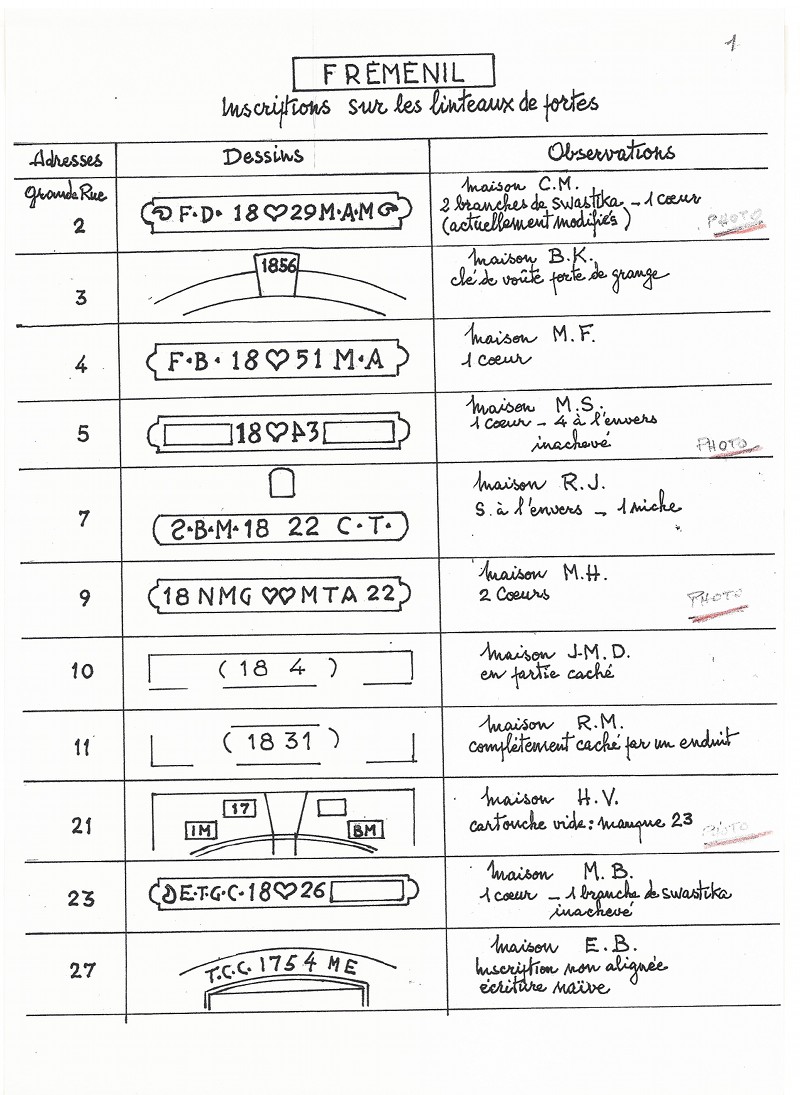 1
FRÉMÉNIL
Inscriptions sur les linteaux de portes
Adresses Dessins Observations
Grande Rue
2
F·D· 18♡29 M·A·M
Maison C.M.
2 branches de swastika - 1 cœur
(actuellement modifiés)
PHOTO
3
1856
Maison B.K.
clé de voûte porte de grange
4
F·B· 18♡51 M·A
Maison M.F.
1 cœur
5
18♡43
Maison M.S.
1 cœur - 4 à l'envers
inachevé
PHOTO
7
S·B·M·18 22 C·T·
Maison R.J.
S. à l'envers - 1 niche
9
18 NMG ♡♡ MTA 22
Maison M.H.
2 Cœurs
PHOTO
10
(18 4 )
Maison J-M.D.
en partie caché
11
(1831 )
Maison R.M.
complètement caché par un enduit
21
17
IM BM
Maison H.V.
cartouche vide: manque 23
PHOTO
23
E·T·G·C·18♡26
Maison M.B.
1 cœur - 1 branche de swastika
inachevé
27
T.C.C. 1754 ME
Maison E.B.
Inscription non alignée
écriture naïve